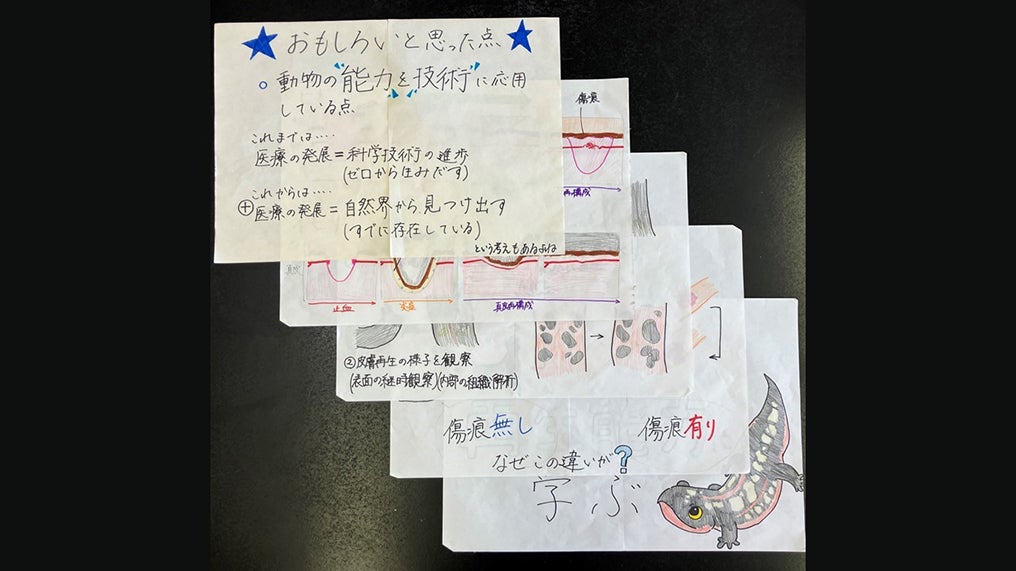 おもしろいと思った点
○動物の"能力を技術"に応用
している点
これまでは‥‥
医療の発展=科学技術の進歩
(ゼロから生みだす)
これからは‥‥
⊕医療の発展=自然界から見つけ出す
(すでに存在している)
という考えもあるよね
傷痕
再構成
止血
炎症
真皮再構成
②皮膚再生の様子を観察
(表面の継時観察)(内部の組織解析)
傷痕無し
傷痕有り
なぜこの違いが?
学ぶ